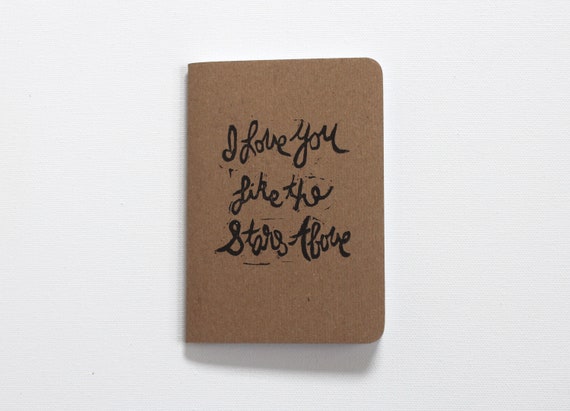 I Love You
Like the
Stars Above